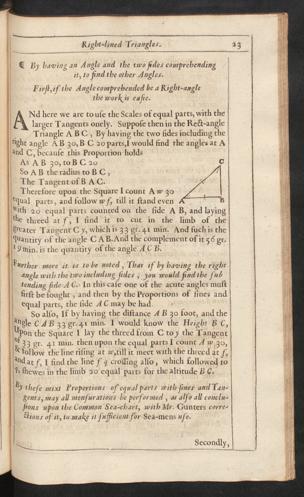 Right-lined Triangles. 23
☾ By having an Angle and the two sides comprehending
it, to find the other Angles.
First, if the Angle comprehended be a Right-angle
the work is easie.
ANd here we are to use the Scales of equal parts, with the
larger Tangents onely. Suppose then in the Rect-angle
Triangle A B C, By having the two sides including the
right angle A B 30, B C 20 parts, I would find the angles at A
and C, because this Proportion holds
As A B 30, to B C 20
So A B the radius to B C,
The Tangent of B A C.
Therefore upon the Square I count A w 30
equal parts, and follow w f, till it stand even
with 20 equal parts counted on the side A B, and laying
the thred at f, I find it to cut in the limb of the
greater Tangent C y, which is 33 gr. 41 min. And such is the
quantity of the angle C A B. And the complement of it 56 gr.
19 min. is the quantity of the angle A C B.
C
A B
Further more it is to be noted, That if by having the right
angle with the two including sides, you would find the sub
tending side A C. In this case one of the acute angles must
first be sought, and then by the Proportions of sines and
equal parts, the side A C may be had.
So also, If by having the distance A B 30 foot, and the
angle C A B 33 gr. 41 min. I would know the Height B C,
Upon the Square I lay the thred from C to y the Tangent
of 33 gr. 41 min. then upon the equal parts I count A w 30,
& follow the line rising at w, till it meet with the thred at f,
and at f, I find the line f q crossing also, which followed to
shewes in the limb 20 equal parts for the altitude B C.
By these mixt Proportions of equal parts with sines and Tan-
gents, may all mensurations be performed, as also all conclu-
sions upon the Common Sea-chart, with Mr. Gunters corre-
ctions of it, to make it sufficient for Sea-mens use.
Secondly,